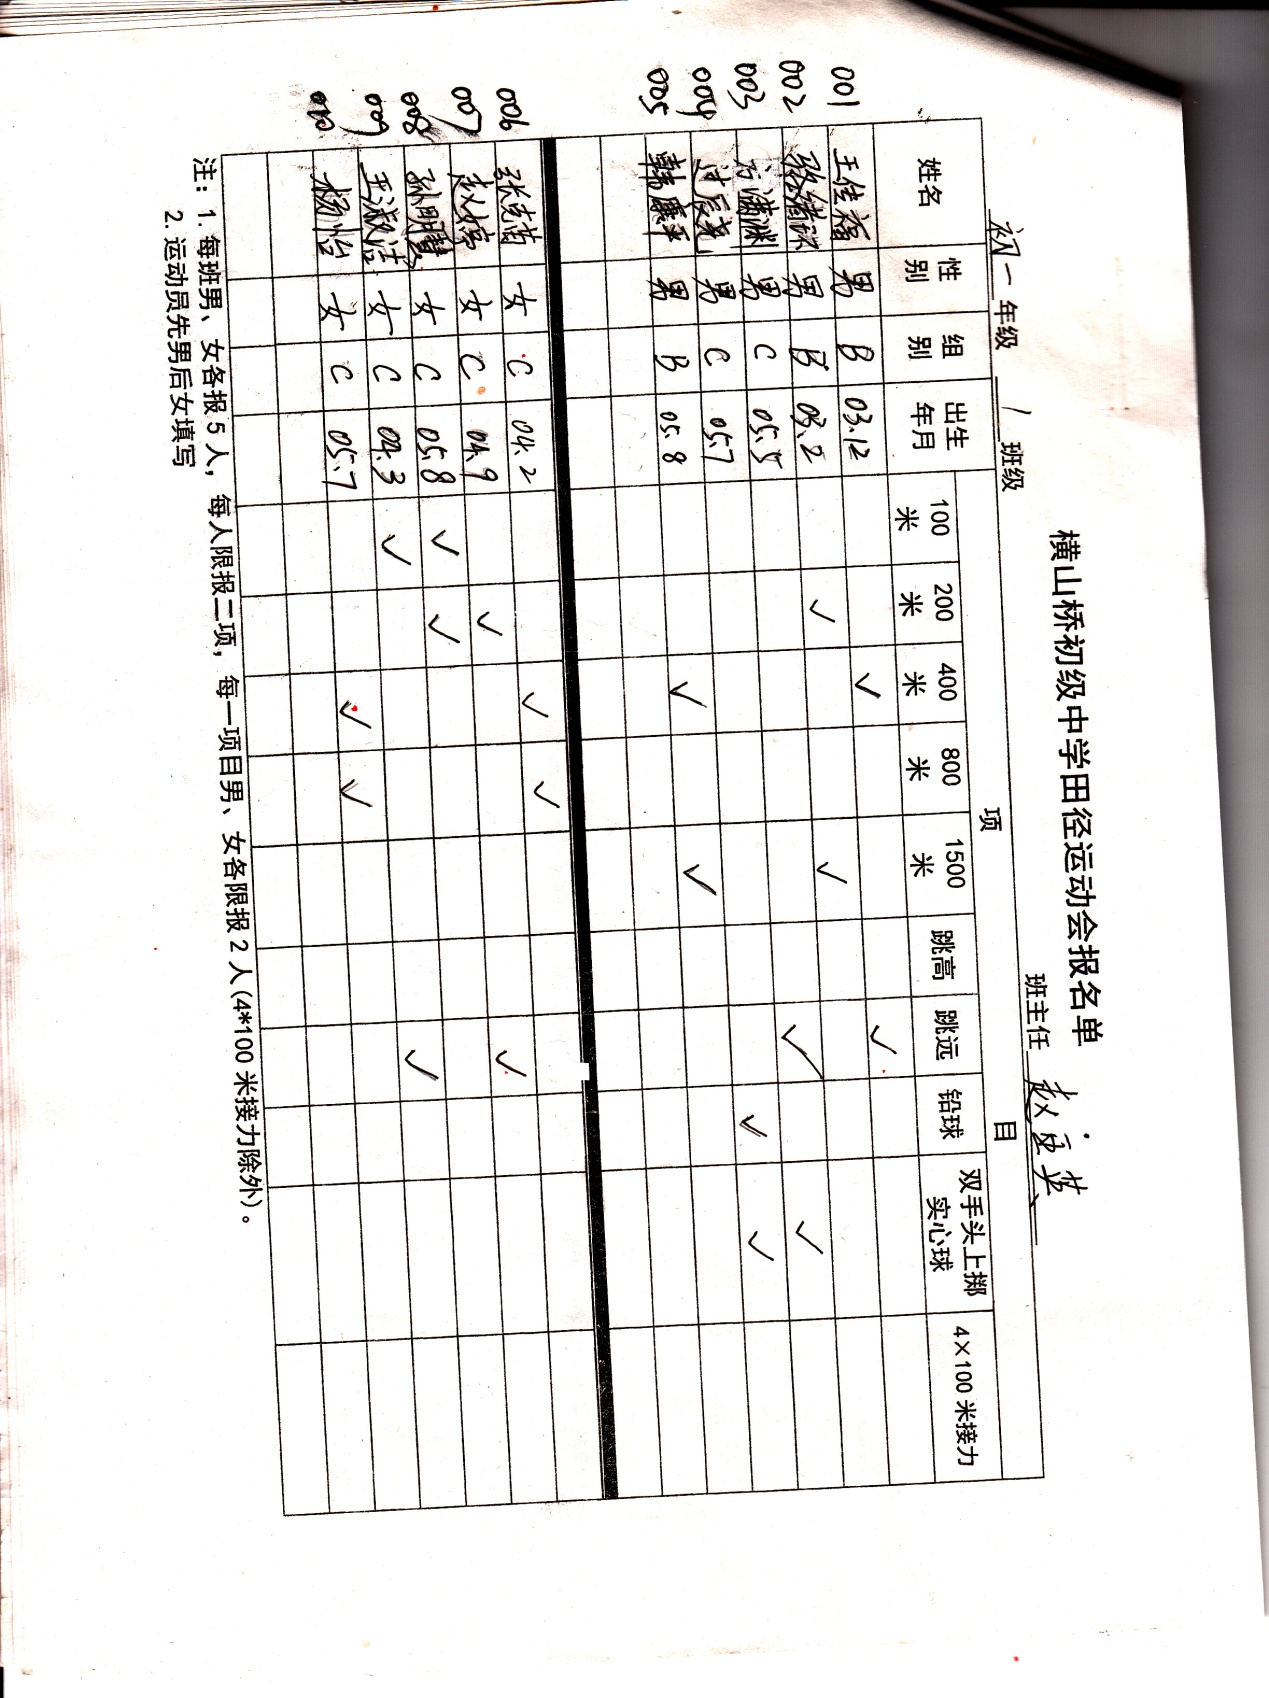 横山桥初级中学田径运动会报名单
初一年级 1 班级 班主任 赵
姓名 性别 组别 出生年月 项目
100米 200米 400米 800米 1500米 跳高 跳远 铅球 双手头上掷实心球 4×100米接力
001 王佳福 男 B 03.12 ✓ ✓
002 男 B 03.2 ✓ ✓
003 男 C 05.5 ✓ ✓
004 男 C 05.7 ✓ ✓
005 韩康平 男 B 05.8 ✓ ✓
006 女 C 04.2 ✓ ✓
007 赵婷 女 C 04.9 ✓ ✓
008 孙明慧 女 C 05.8 ✓ ✓
009 王淑洁 女 C 04.3 ✓ ✓
010 杨怡 女 C 05.7 ✓ ✓
注：1. 每班男、女各报5人，每人限报二项，每一项目男、女各限报2人(4*100米接力除外)。
2. 运动员先男后女填写